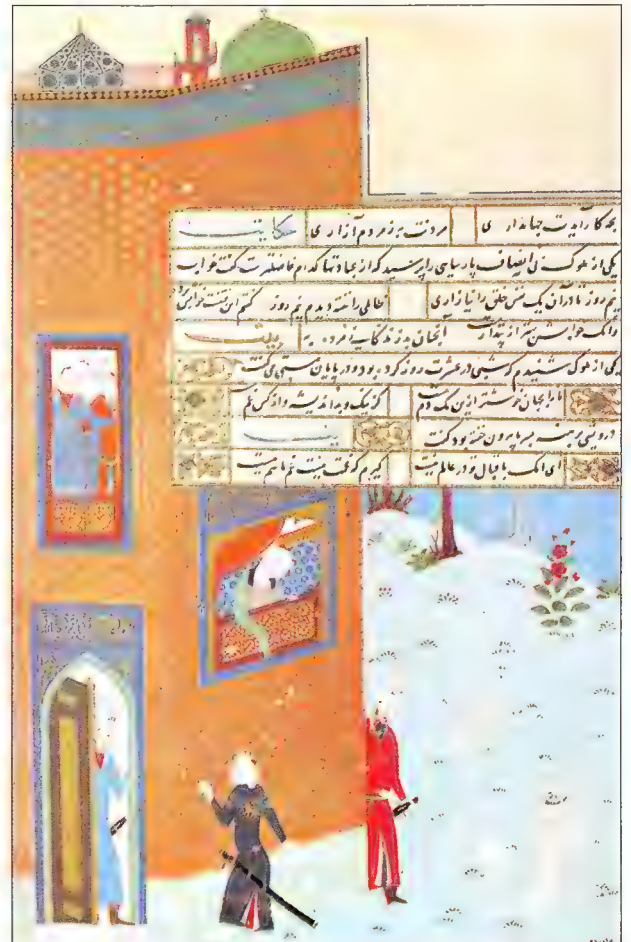 بچه کار آیدت جهانداری مردنت به ز مردم آزاری حکایت
یکی از ملوک بی انصاف پارسایی را پرسید که از عبادتها کدام فاضلترست گفت خواب
نیم روز تا در آن یک نفس خلق را نیازاری ظالمی را خفته دیدم نیم روز گفتم این فتنست خوابش
وانک خوابش بهتر از بیداریست آنچنان بد زندگانی مرده به بیت
یکی از ملوک شنیدم که شبی در عشرت روز کرده بود و در پایان مستی می گفت
ما را بجهان خوشتر ازین یک دم نیست کز نیک و بد اندیشه و از کس غم
درویشی برهنه بسرما برون خفته بود گفت بیت
ای انک باقبال تو در عالم نیست گیرم که غمت نیست غم ما هم نیست